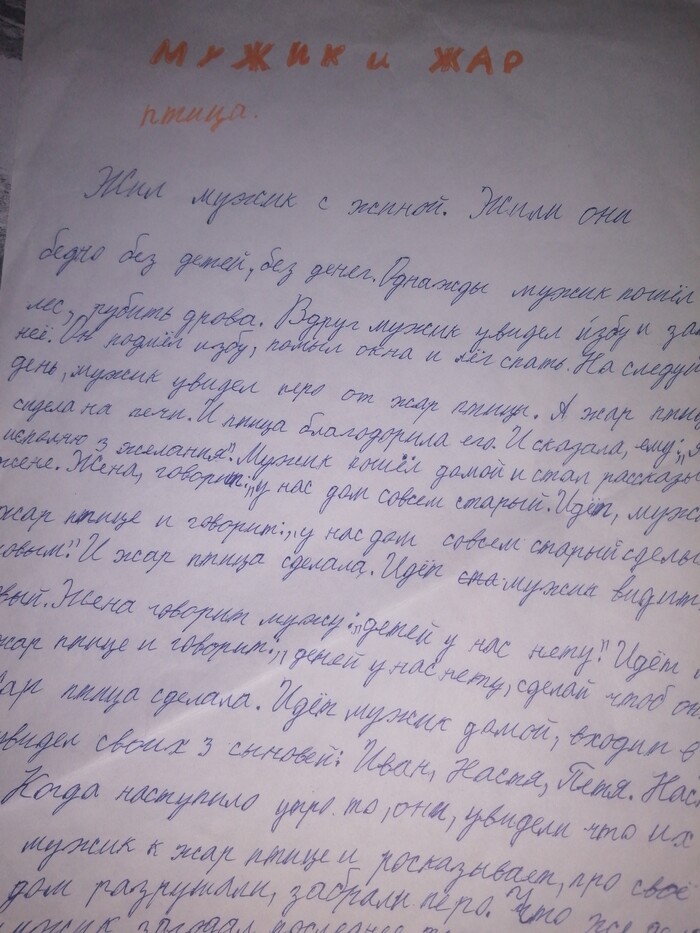 МУЖИК и ЖАР
птица.
Жил мужик с жиной. Жили они
бедно без детей, без денег. Однажды мужик пошёл
лес, рубить дрова. Вдруг мужик увидел избу и
неё. Он подмёл избу, помыл окна и лёг спать. На следую
день, мужик увидел перо от жар птицы. А жар птиц
сидела на печи. И птица благодорила его. И сказала, ему: „я
исполню 3 желания". Мужик пошёл домой и стал рассказы
жене. Жена, говорит: „у нас дом совсем старый. Идёт, мужи
жар птице и говорит: „у нас дом совсем старый сделы
новым!" И жар птица сделала. Идёт мужик видит
вый. Жена говорит мужу: „детей у нас нету!" Идёт
жар птице и говорит: „детей у нас нету, сделай чтоб он
ар птица сделала. Идёт мужик домой, входит в
увидел своих 3 сыновей: Иван, Настя, Петя. Нас
Когда наступило утро. то, они, увидели что их
мужик к жар птице и росказывает, про своё
дом разрушали, забрали перо. Что же
мужик загадал последнее